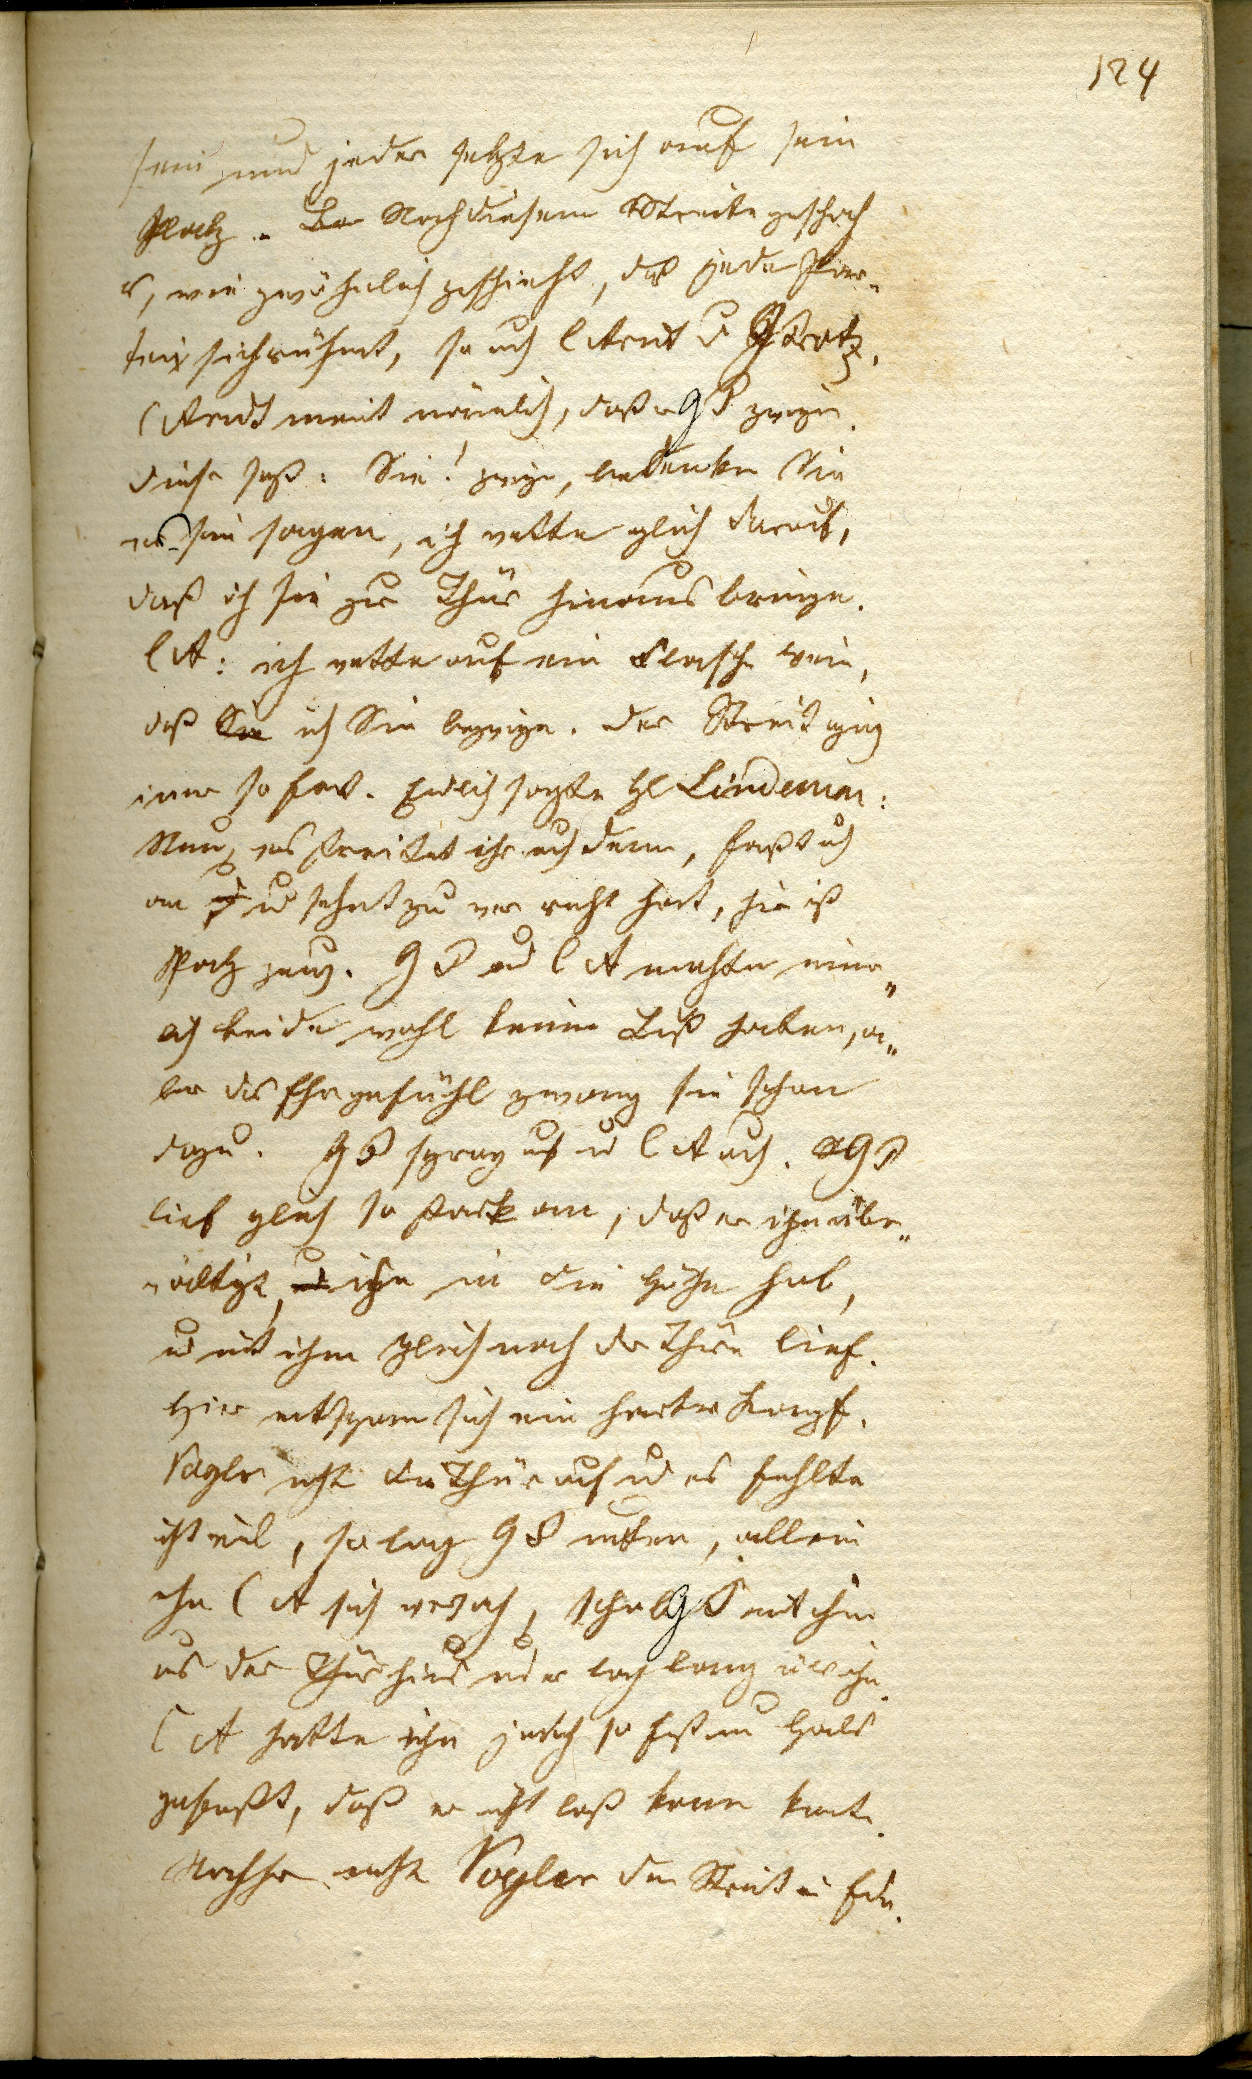 124
sein und jeder setzte sich auf sein
Platz. Nach diesem Streite geschah
es, wie gewöhnlich geschieht, daß jede Par-
tei sich rühmt, so auch C Arnt u
C Arndt meint nämlich, daß er GS zwinge.
diese saß: Sie! zwinge, bedenken Sie
was sie sagen, ich wette gleich darauf,
daß ich sie zur Thür hinaus bringe.
C A: ich wette auf ein Flasche Wein,
daß Sie ich Sie bezwinge. Der Streit ging
immer so fort. Endlich sagte H Lindeman:
Nun, was streitet ihr euch denn, faßt euch
an u sehet zu wer recht hat, hie ist
Platz genug. GS und C A mochten
ich beide wohl keine Lust haben, a-
ber das Ehrgefühl zwang sie schon
dazu. GS sprang auf u C A auch. GS
lief gleich so stark an, daß er ihn über-
wältigt, ihn in die Höhe hob,
u mit ihm gleich nach der Thüre lief.
Hier entspann sich ein harter Kampf.
Vogler macht die Thür auf u es fehlte
nicht viel, so lag GS unten, allein
ehe C A sich versah, schob GS mit ihm
aus der Thür hinaus und er lag lang über ihn.
C A hatte ihn jedoch so fest am Hals
gefaßt, daß er nicht loß komen konte.
Nachher macht Vogler dem Streit ein Ende.